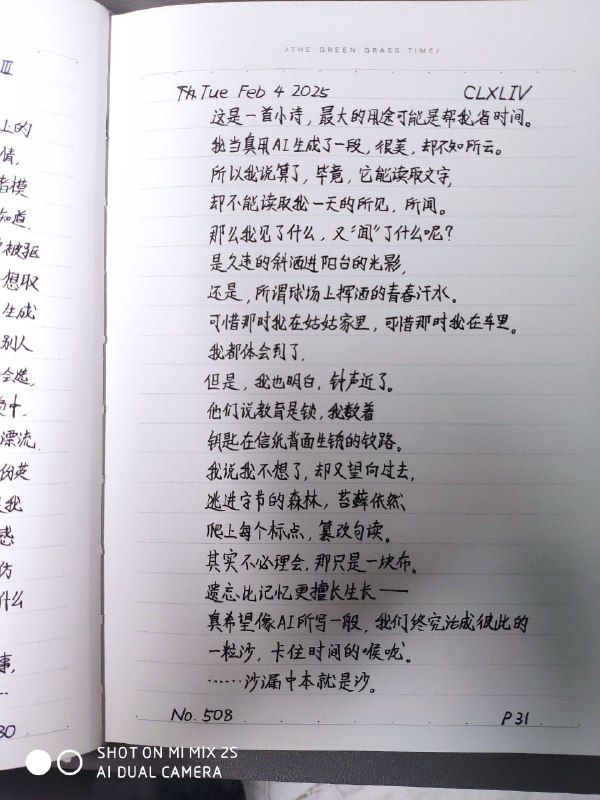 /THE GREEN GRASS TIME/
Th.Tue Feb 4 2025 CLXLIV
这是一首小诗，最大的用途可能是帮我省时间。
我当真用AI生成了一段，很美，却不知所云。
所以我说算了，毕竟，它能读取文字，
却不能读取我一天的所见，所闻。
那么我见了什么，又“闻”了什么呢？
是久违的斜洒进阳台的光影，
还是，所谓球场上挥洒的青春汗水。
可惜那时我在姑姑家里，可惜那时我在车里。
我都体会到了，
但是，我也明白，钟声近了。
他们说教育是锁，我数着
钥匙在信纸背面生锈的纹路。
我说我不想了，却又望向过去，
逃进字节的森林，苔藓依然
爬上每个标点，篡改句读。
其实不必理会，那只是一块布。
遗忘比记忆更擅长生长——
真希望像AI所写一般，我们终究活成彼此的
一粒沙，卡住时间的喉咙。
……沙漏中本就是沙。
No. 508 P 31
III
上的
情，
者模
知道，
被驱
想取
生成
别人
会选，
漂流，
份英
是我
感
仿
什么
事，
…
30
SHOT ON MI MIX 2S
AI DUAL CAMERA